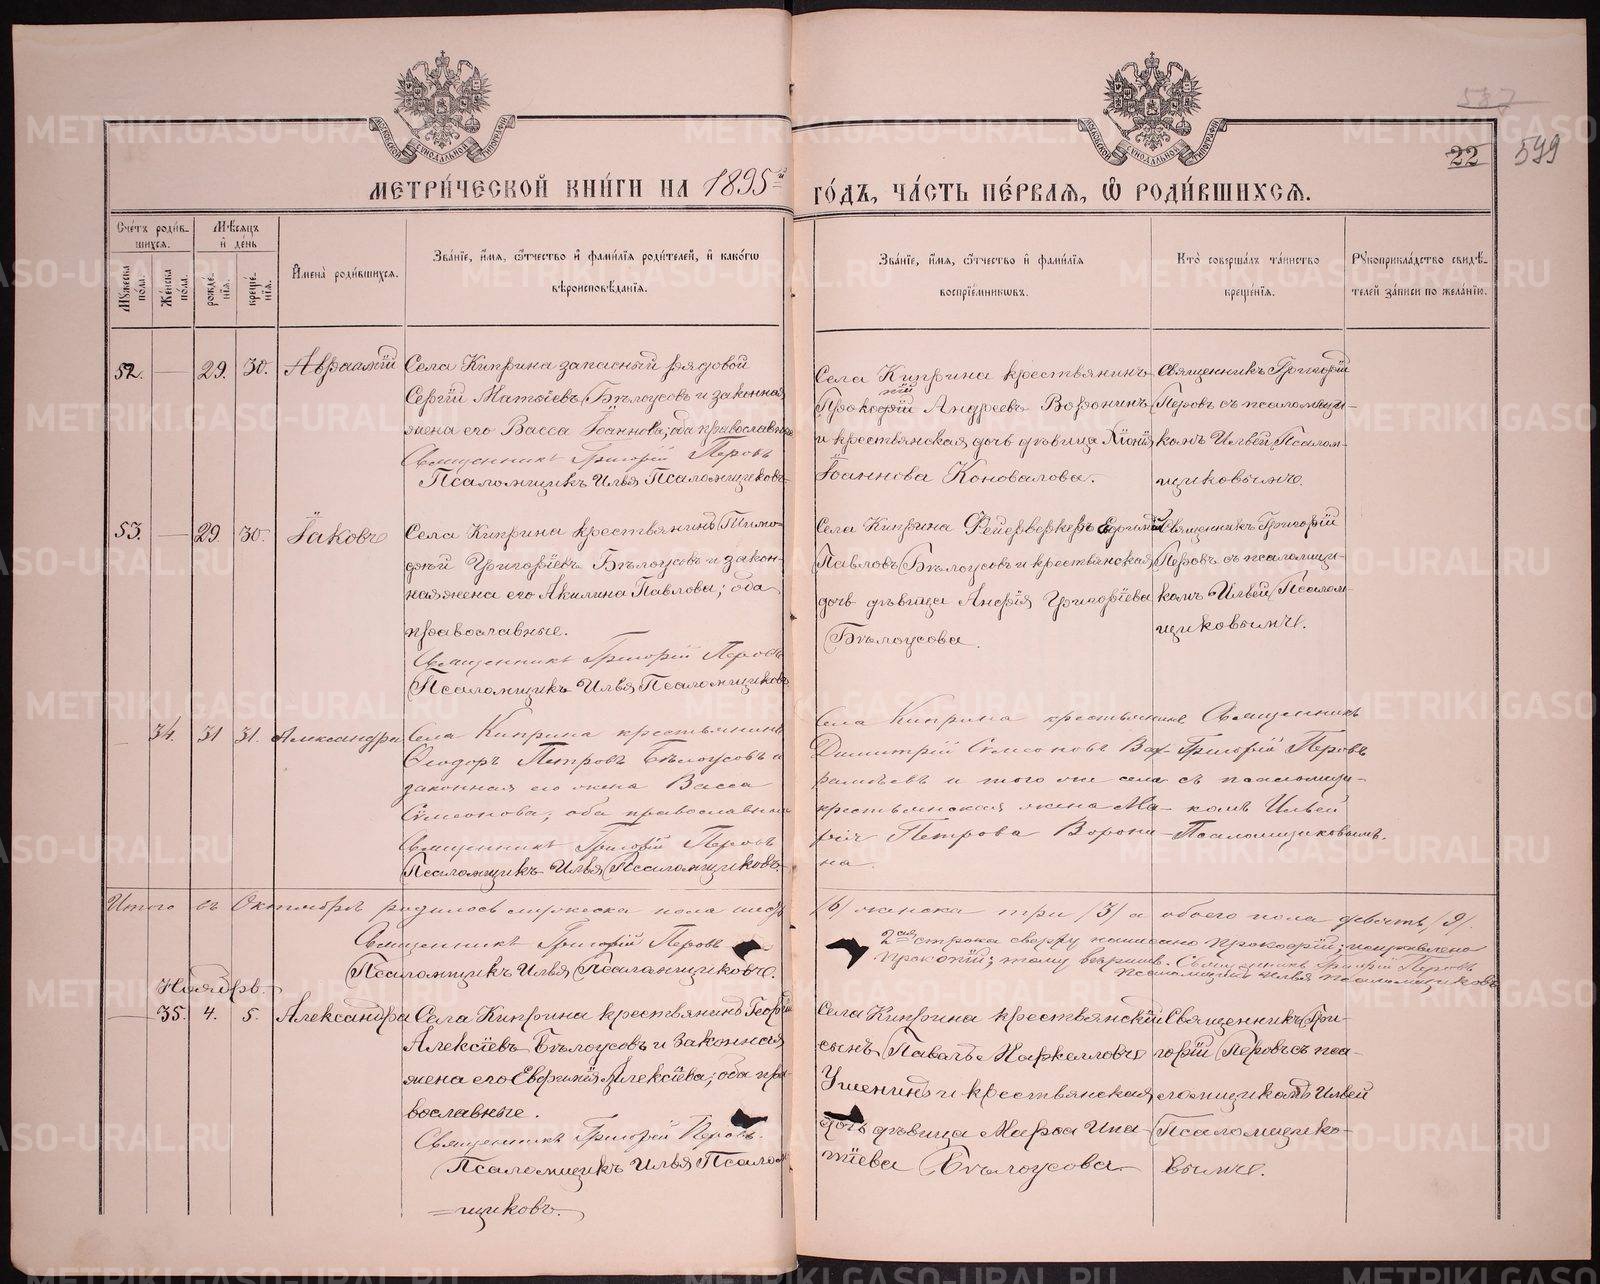 587
22
599
МЕТРИ́ЧЕСКОЙ КНИ́ГИ НА 1895й ГО́ДЪ, ЧА́СТЬ ПЕ́РВАЯ, Ѡ РОДИ́ВШИХСЯ.
Сче́тъ роди́вшихся.
Мѣ́сяцъ и҆ де́нь
И҆мена̀ роди́вшихся.
Зва́нїе, и҆́мя, ѻ҆́тчество и҆ фами́лїя роди́телей, и҆ како́гѡ
вѣроисповѣ́данїя.
Зва́нїе, и҆́мя, ѻ҆́тчество и҆ фами́лїя
воспрїе́мникѡвъ.
Кто̀ соверша́лъ та́инство
креще́нїя.
Рꙋкоприкла́дство свидѣ́-
телей за́писи по жела́нїю.
Мꙋ́жеска по́ла.
Же́нска по́ла.
рожде́нїѧ.
креще́нїѧ.
52. — 29. 30. Авраамій
Села Киприна запасный рядовой
Сергій Матѳіевъ Бѣлоусовъ и законная
жена его Васса Іоаннова; оба православные
Священникъ Григорій Перовъ
Псаломщикъ Илья Псаломщиковъ
Села Киприна крестьянинъ
Прокофій Андреевъ Воронинъ
и крестьянская дочь дѣвица Хіонія
Іоаннова Коновалова.
Священникъ Григорій
Перовъ съ псаломщи-
комъ Ильей Псалом-
щиковымъ.
53. — 29. 30. Іаковъ
Села Киприна крестьянинъ Тимо-
фей Григоріевъ Бѣлоусовъ и закон-
ная жена его Акилина Павлова; оба
православные.
Священникъ Григорій Перовъ
Псаломщикъ Илья Псаломщиковъ
Села Киприна Фейерверкеръ
Павловъ Бѣлоусовъ и крестьянская
дочь дѣвица Григоріева
Бѣлоусова.
Священникъ Григорій
Перовъ съ псаломщи-
комъ Ильей Псалом-
щиковымъ.
— 34. 31 31. Александра
Села Киприна крестьянинъ
Ѳеодоръ Петровъ Бѣлоусовъ и
законная его жена Васса
Симеонова, оба православные
Священникъ Григорій Перовъ
Псаломщикъ Илья Псаломщиковъ.
Села Киприна крестьянинъ
Димитрій Симеоновъ Вар-
и того же села
крестьянская жена Ма-
рія Петрова Ворони-
на.
Священникъ
Григорій Перовъ
съ псаломщи-
комъ Ильей
Псаломщиковымъ.
Итого въ Октябрѣ родилось мужеска пола шесть /6/ женска три /3/ а обоего пола девять /9/.
Священникъ Григорій Перовъ
Псаломщикъ Илья Псаломщиковъ.
2ая строка сверху написано Прокофій; исправлено
Прокопій; тому вѣрить. Священникъ Григорій Перовъ
Псаломщикъ Илья Псаломщиковъ
Ноябрь.
— 35. 4. 5. Александра
Села Киприна крестьянинъ Георгій
Алексіевъ Бѣлоусовъ и законная
жена его Евфимія Алексіева; оба пра-
вославные.
Священникъ Григорій Перовъ.
Псаломщикъ Илья Псалом-
щиковъ.
Села Киприна крестьянскій
сынъ Павелъ Маркелловъ
и крестьянская
дочь дѣвица Марѳа Ипа-
тіева Бѣлоусова
Священникъ Гри-
горій Перовъ съ пса-
ломщикомъ Ильей
Псаломщико-
вымъ.